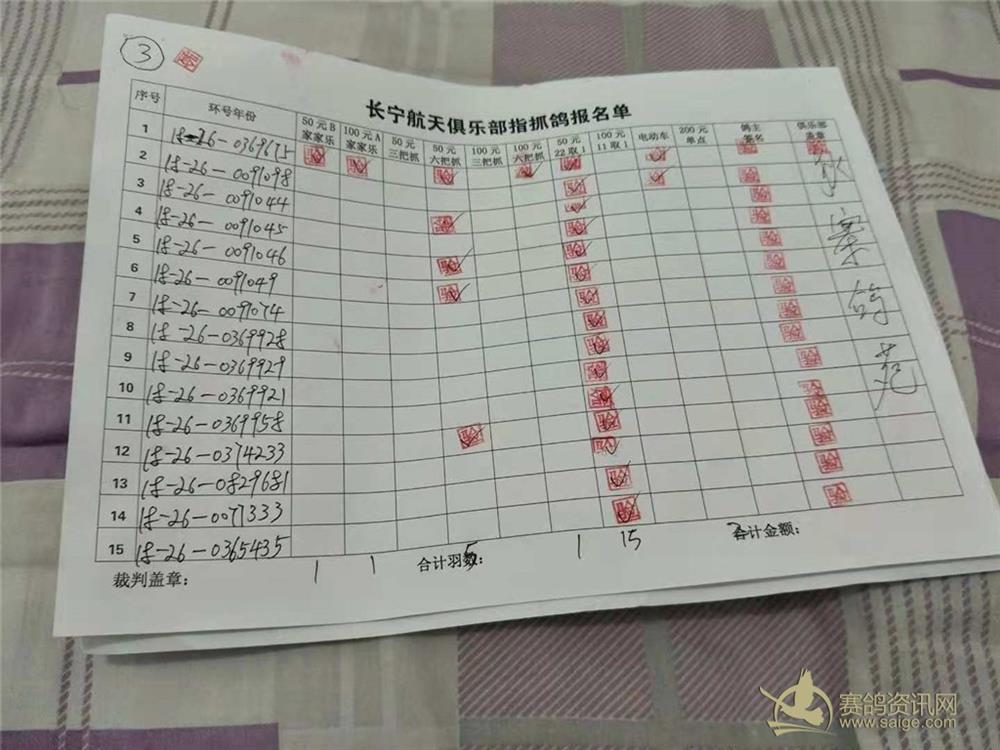 3
长宁航天俱乐部指抓鸽报名单
序号 环号年份 50元B家家乐 100元A家家乐 50元三把抓 50元六把抓 100元三把抓 100元六把抓 50元22取1 100元11取1 电动车 200元单点 鸽主签名 俱乐部盖章
1 18-26-0369675
2 18-26-0091098
3 18-26-0091044
4 18-26-0091045
5 18-26-0091046
6 18-26-0091049
7 18-26-0091074
8 18-26-0369928
9 18-26-0369929
10 18-26-0369921
11 18-26-0369958
12 18-26-0374233
13 18-26-0829681
14 18-26-0077333
15 18-26-0365435
1 1 5 1 15 2
裁判盖章： 合计羽数： 合计金额：
鸽苑
赛鸽资讯网
www.saige.com